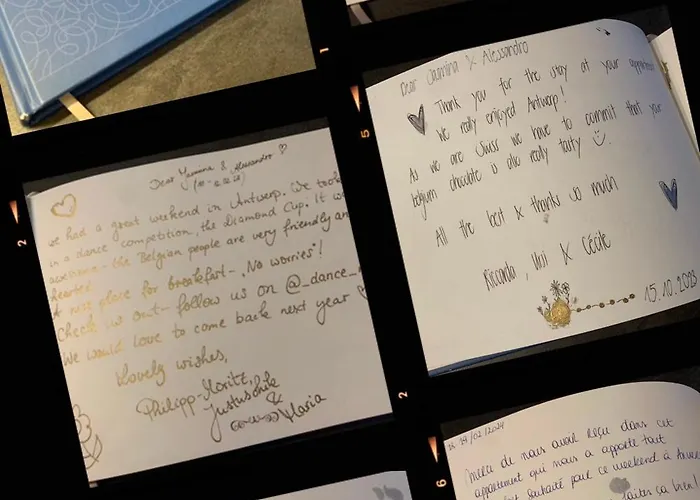 Dear Jasmina & Alessandro
Thank you for the stay at your appartment
We really enjoyed Antwerp!
As we are Swiss we have to commit that your
belgium chocolate is also really tasty
All the best & thanks so much
Riccarda, & Cécile
15.10.2023
Dear Yasmina & Alessandro
we had a great weekend in Antwerp. We took
in a dance competition, the Diamond Cup. It w
awesome - the Belgian people are very friendly an
hearted.
A nice place for breakfast - „No worries"!
Check us out - follow us on @_dance_
We would love to come back next year
Lovely wishes,
Philipp-Moritz,
Justuschik
&
Maria
19/02/2024
merci de nous avoir reçu dans cet
appartement qui nous a apporté tout
souhaité pour ce weekend à Anve
ça bien!
1
2
5
2
6